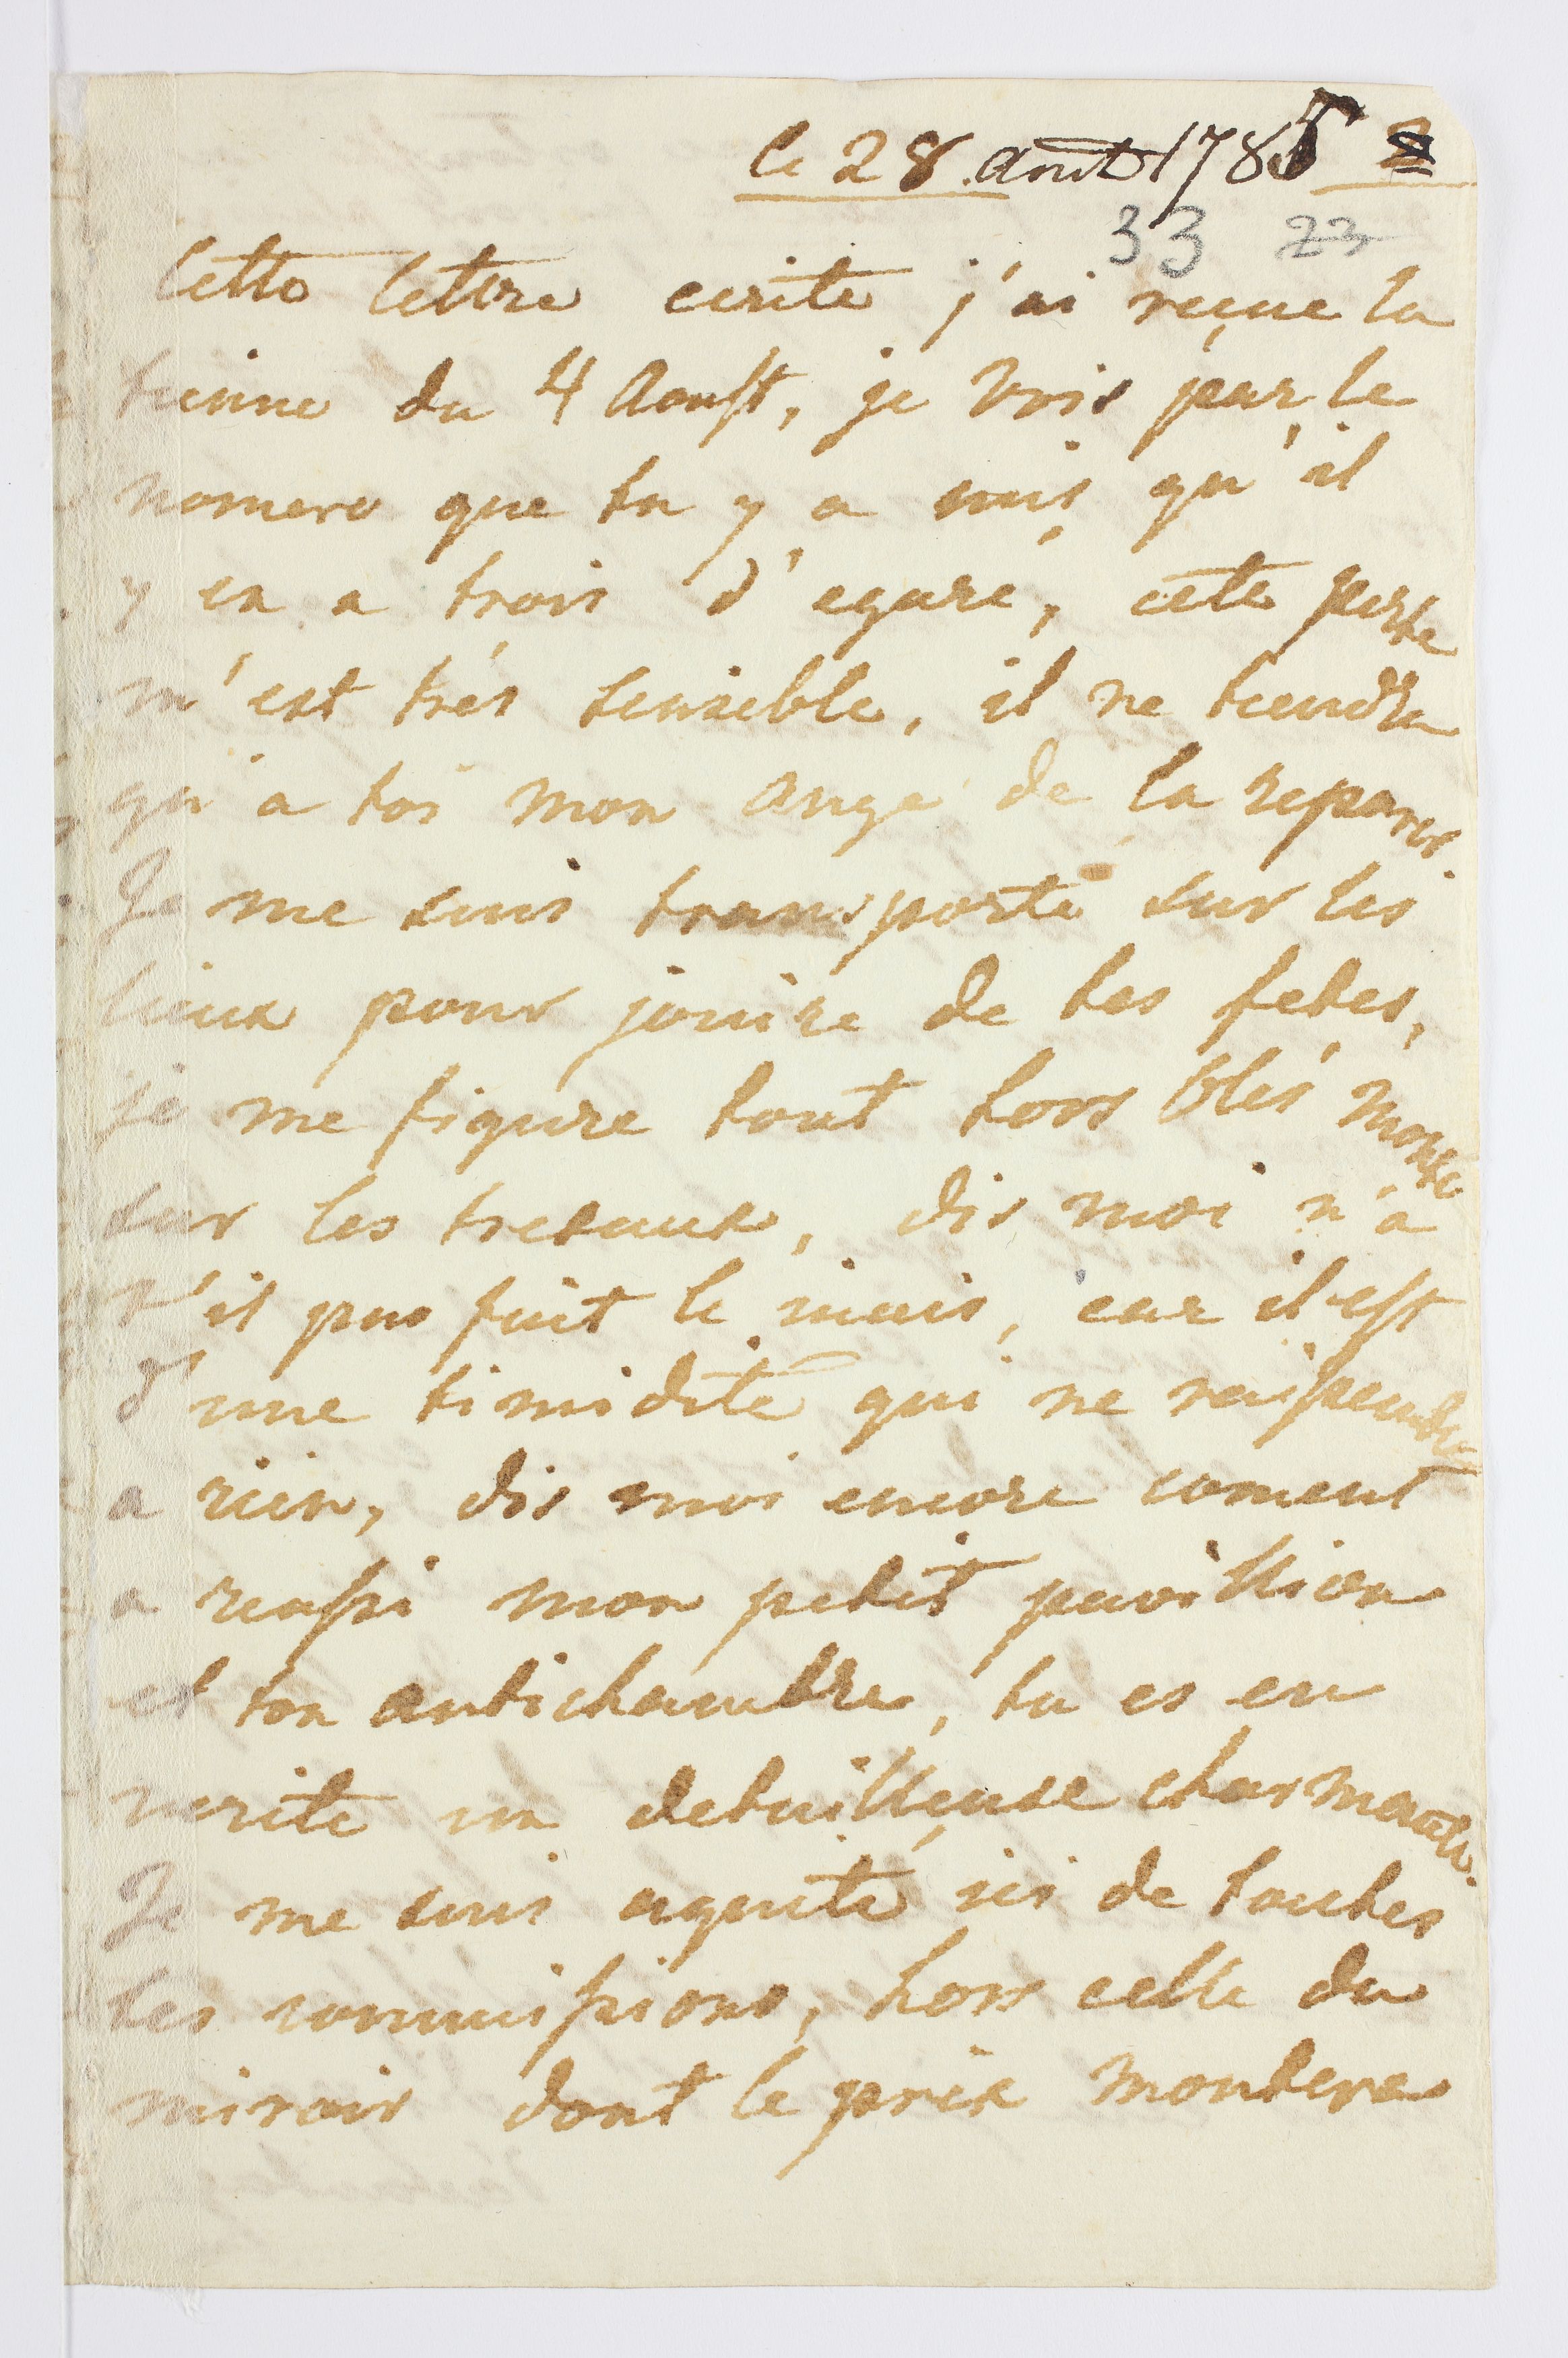 le 28. Aout 1785
33 23
Cette lettre ecrite j'ai reçue la
tienne du 4 Aoust, je vois par le
nomero que tu y a mis qu'il
y en a trois d'egaré, cette perte
m'est très sensible, il ne tiendra
qu'a toi mon ange de la reparer.
Je me suis transporté sur les
lieux pour jouire de tes fetes,
je me figure tout hors blés monté
sur les tretaux, dis moi n'a
t'il pas fait le niais, car il est
d'une timidité qui ne
a rien, dis moi encore coment
a reussi mon petit pavillion
et ton antichambre, tu es en
verité un detailleuse charmante.
Je me suis aquité ici de toutes
tes commissions, hors celle du
miroir dont le prix montera